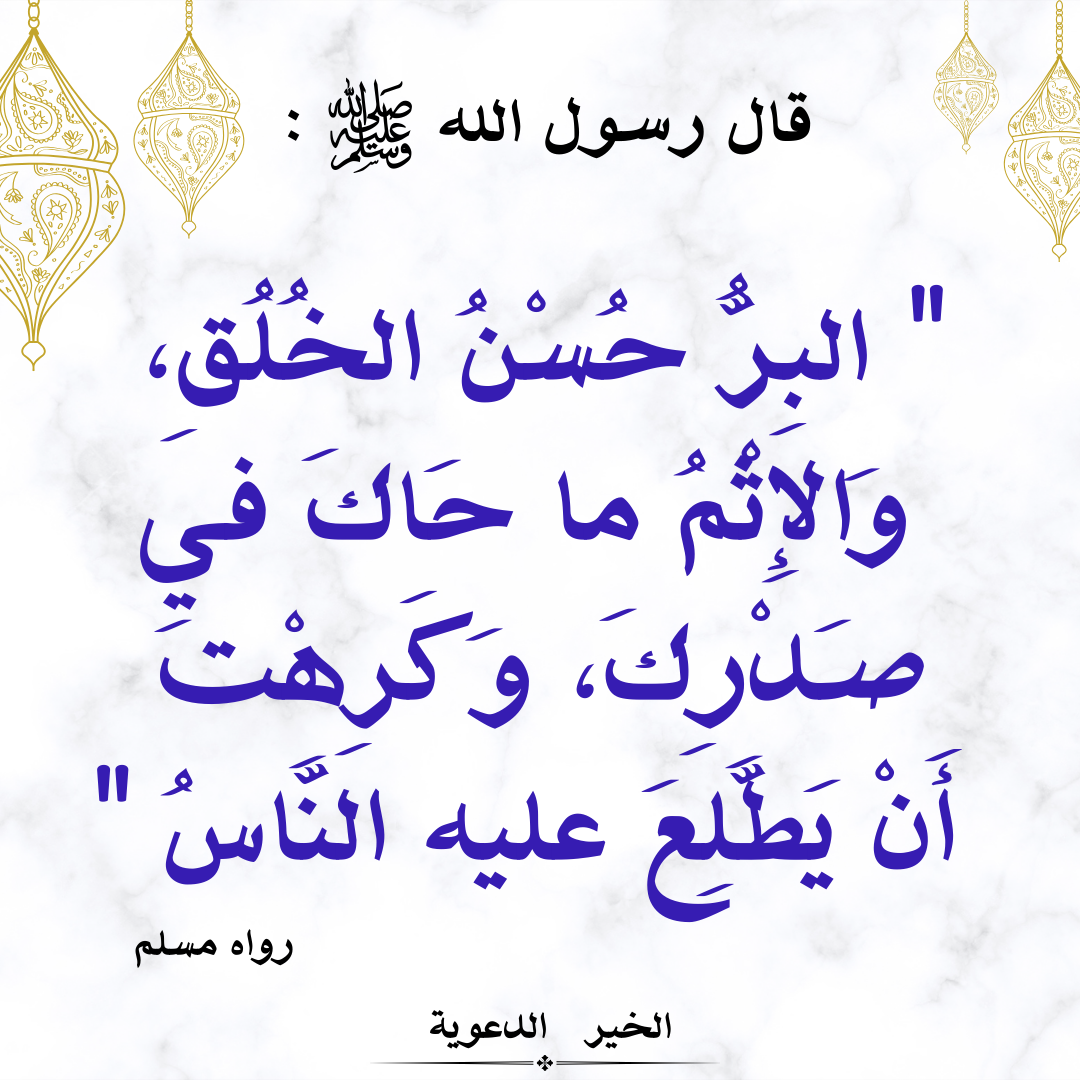 قال رسول الله ﷺ :
" البِرُّ حُسْنُ الخُلُقِ،
وَالإِثْمُ ما حَاكَ في
صَدْرِكَ، وَكَرِهْتَ
أَنْ يَطَّلِعَ عليه النَّاسُ "
رواه مسلم
الخير الدعوية